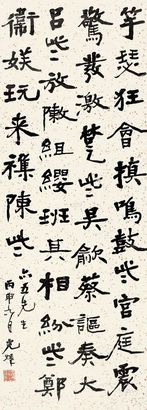 竽瑟狂會搷鳴鼓些宮庭震
驚發激楚些吳歈蔡謳奏大
呂些放敶組纓班其相紛些鄭
衛媄玩来襍陳些
六五先生
丙申六月光煒